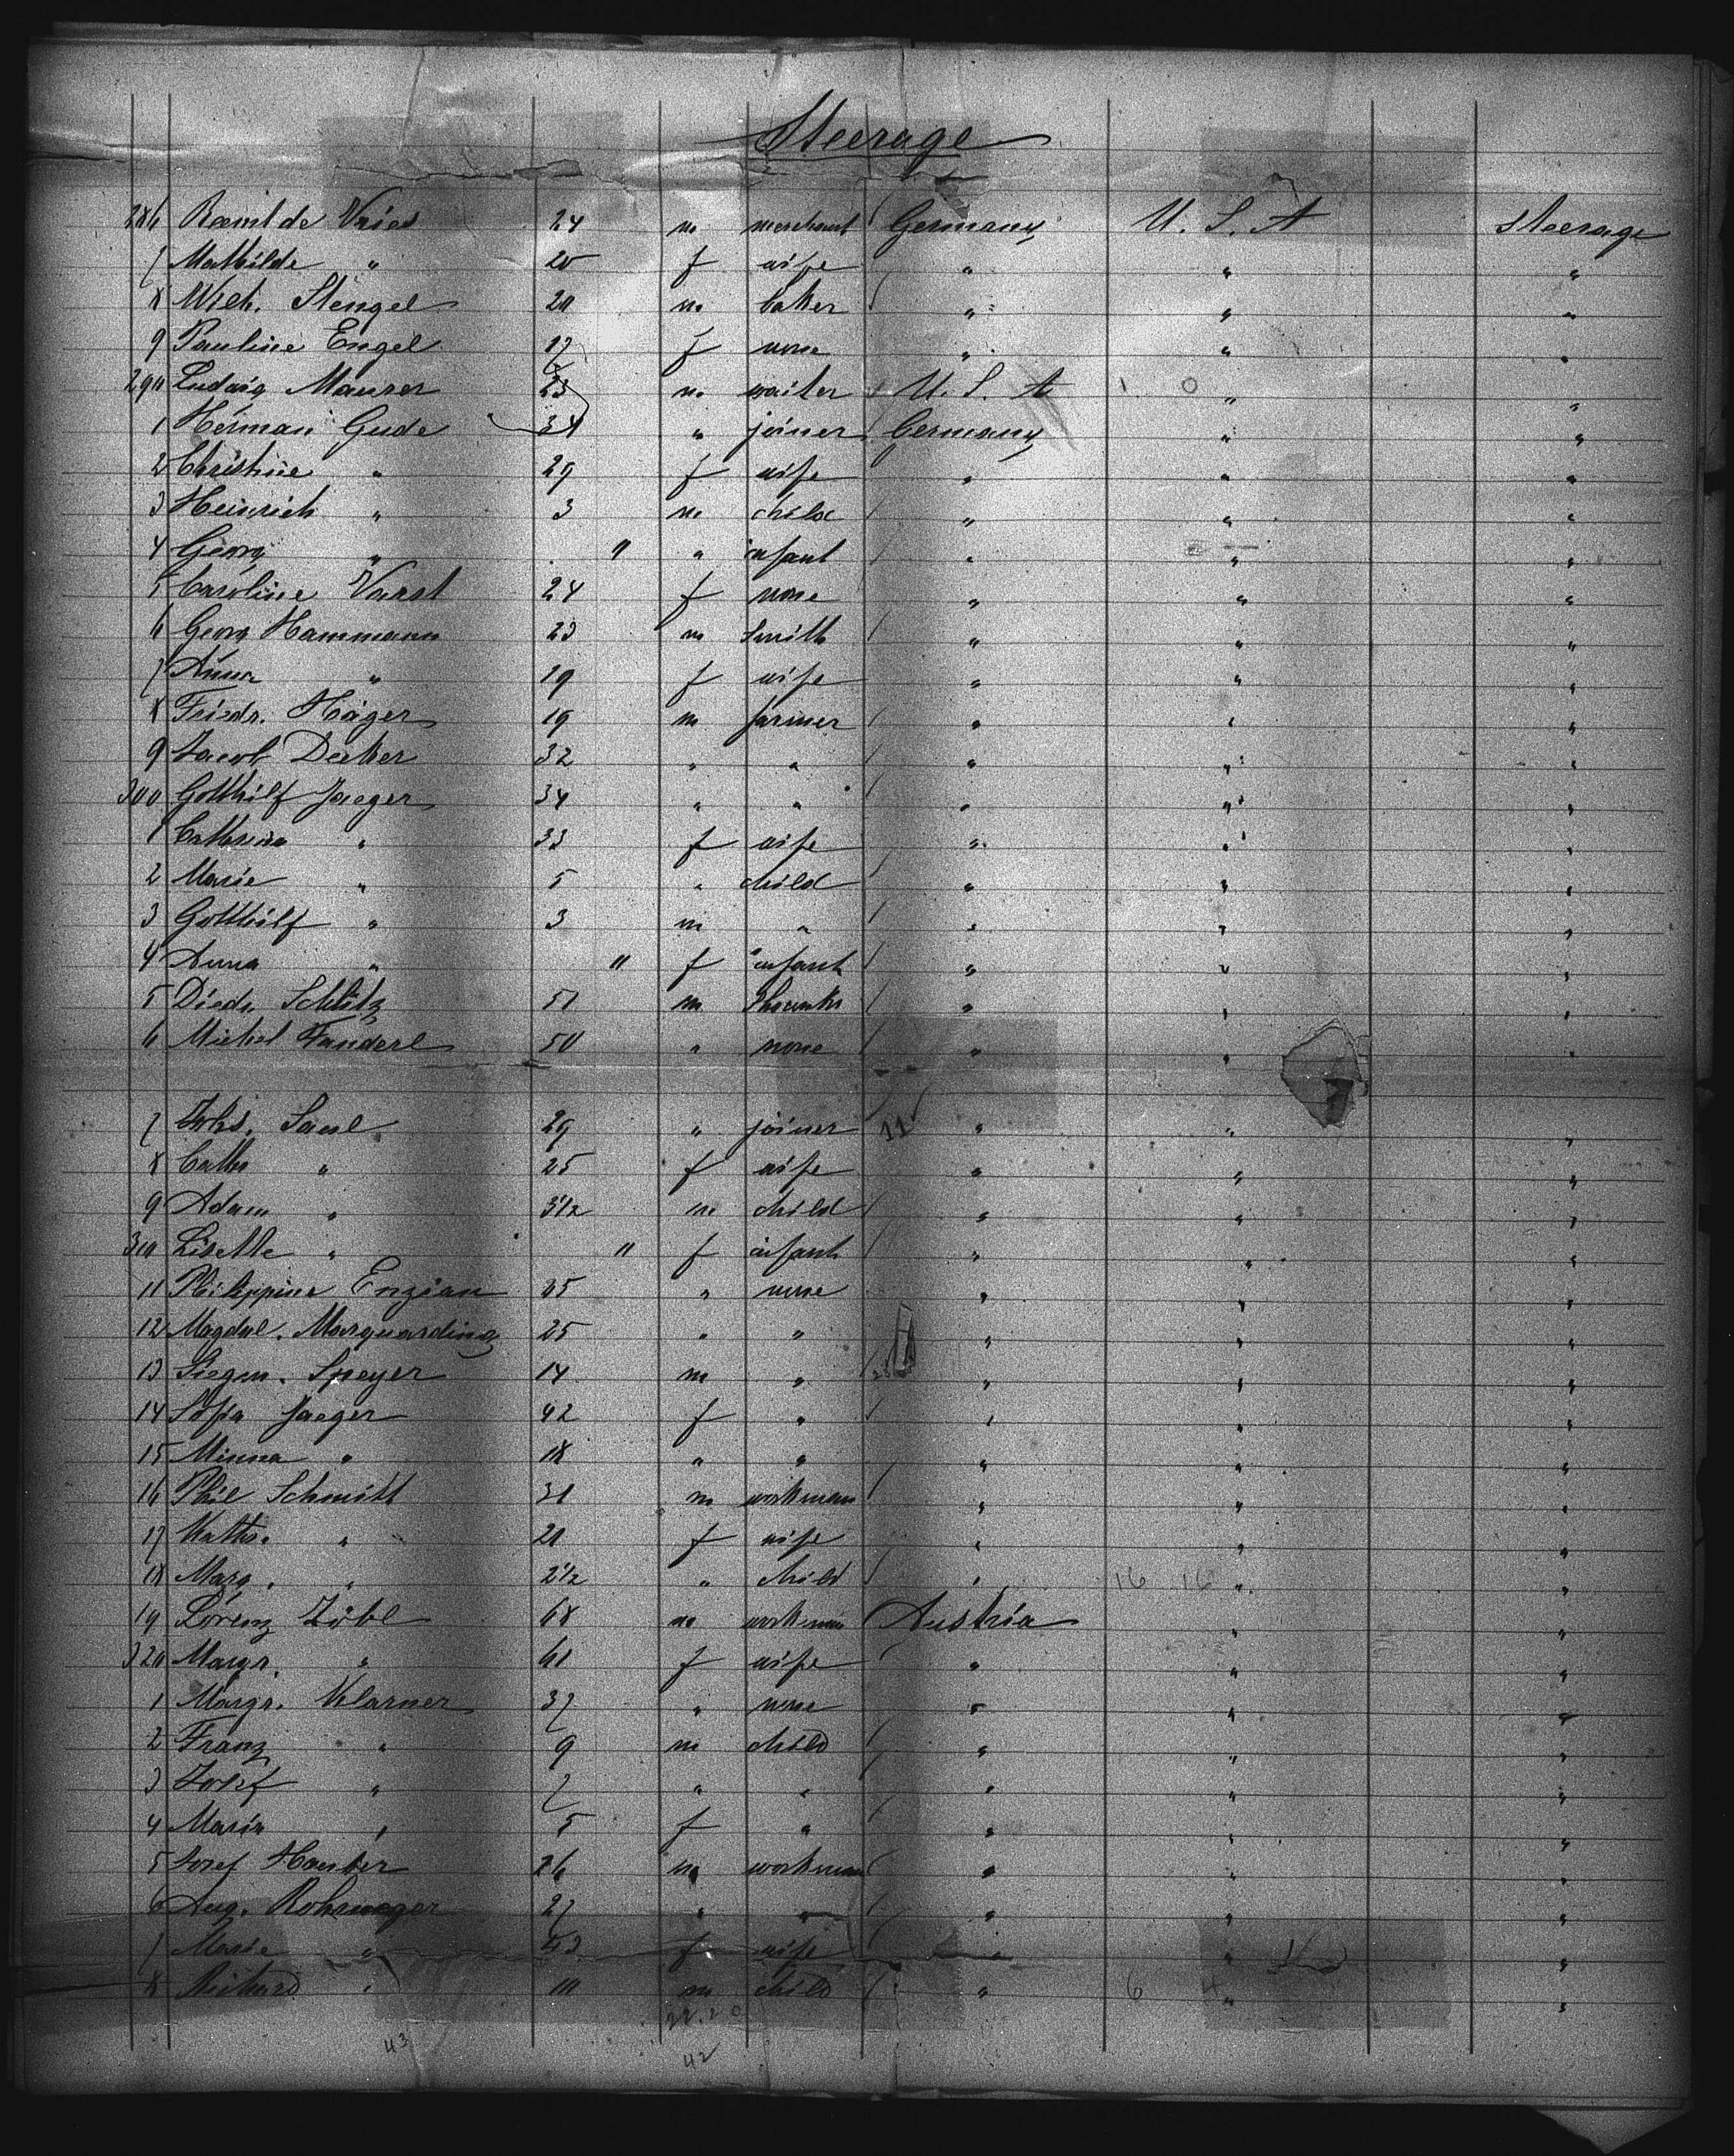 Steerage
286 de Vries 24 m merchant Germany U. S. A steerage
7 Mathilde " 20 f wife " " "
8 Mich. Stengel 20 m baker " " "
9 Pauline Engel 17 f none " " "
290 Ludwig Maurer 23 m waiter U. S. A 1 0 " "
1 Herman Gude 34 " joiner Germany " "
2 Christine " 29 f wife " " "
3 Heinrich " 3 m child " " "
4 Georg " " " infant " " "
5 Caroline Varst 24 f none " " "
6 Georg Hammann 23 m Smith " " "
7 Anna " 19 f wife " " "
8 Friedr. Häger 19 m farmer " " "
9 Jacob Decker 32 " " " " "
300 Gotthilf Jaeger 34 " " " " "
1 Cathrina " 33 f wife " " "
2 Marie " 5 " child " " "
3 Gotthilf " 3 m " " " "
4 Anna " " f infant " " "
5 Diedr. Schlitz 51 m " " "
6 Michel Fanderl 50 " none " " "
7 Johs. Saul 29 " joiner 11 " " "
8 Cathr " 25 f wife " " "
9 Adam " 3 1/2 m child " " "
310 Lisette " " f infant " " "
11 Philippine Enzian 25 " none " " "
12 Magdal. Marquarding 25 " " " " "
13 Siegm. Speyer 14 m " " " "
14 Sofia Jaeger 42 f " " " "
15 Minna " 18 " " " " "
16 Phil Schmitt 31 m workman " " "
17 Kathr. " 21 f wife " " "
18 Marg. " 2 1/2 " child " 16 16 " "
19 Lorenz Zöbl 68 m workman Austria " "
320 Margr. " 61 f wife " " "
1 Margr. Klarner 37 " none " " "
2 Franz " 9 m child " " "
3 Josef " 7 " " " " "
4 Maria " 5 f " " " "
5 Josef Hauber 26 m workman " " "
6 Aug. 27 " " " " "
7 Marie " 43 f wife " " "
8 Richard " 10 m child " 6 4 " "
22.20
43 42